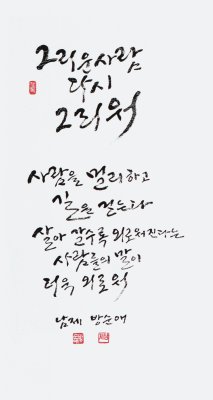 그리운 사람
다시
그리워
사람을 멀리하고
길을 걷는다
살아 갈수록 외로워진다는
사람들의 말이
더욱 외로워
남제 방순애